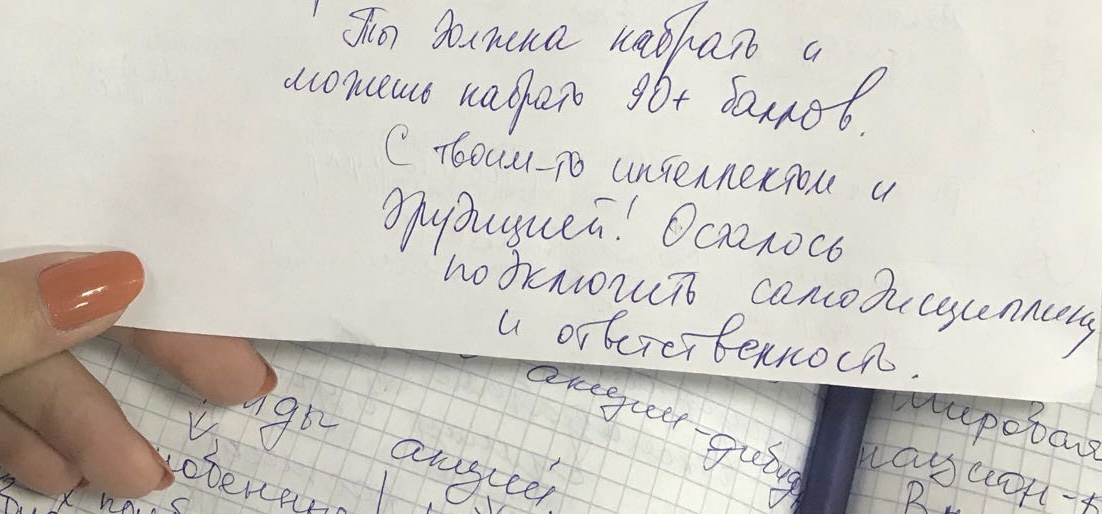 Ты должна набрать и
можешь набрать 90+ баллов.
С твоим-то интеллектом и
эрудицией! Осталось
подключить самодисциплину
и ответственность.
акции-дибуд
иды
акций
Мировая